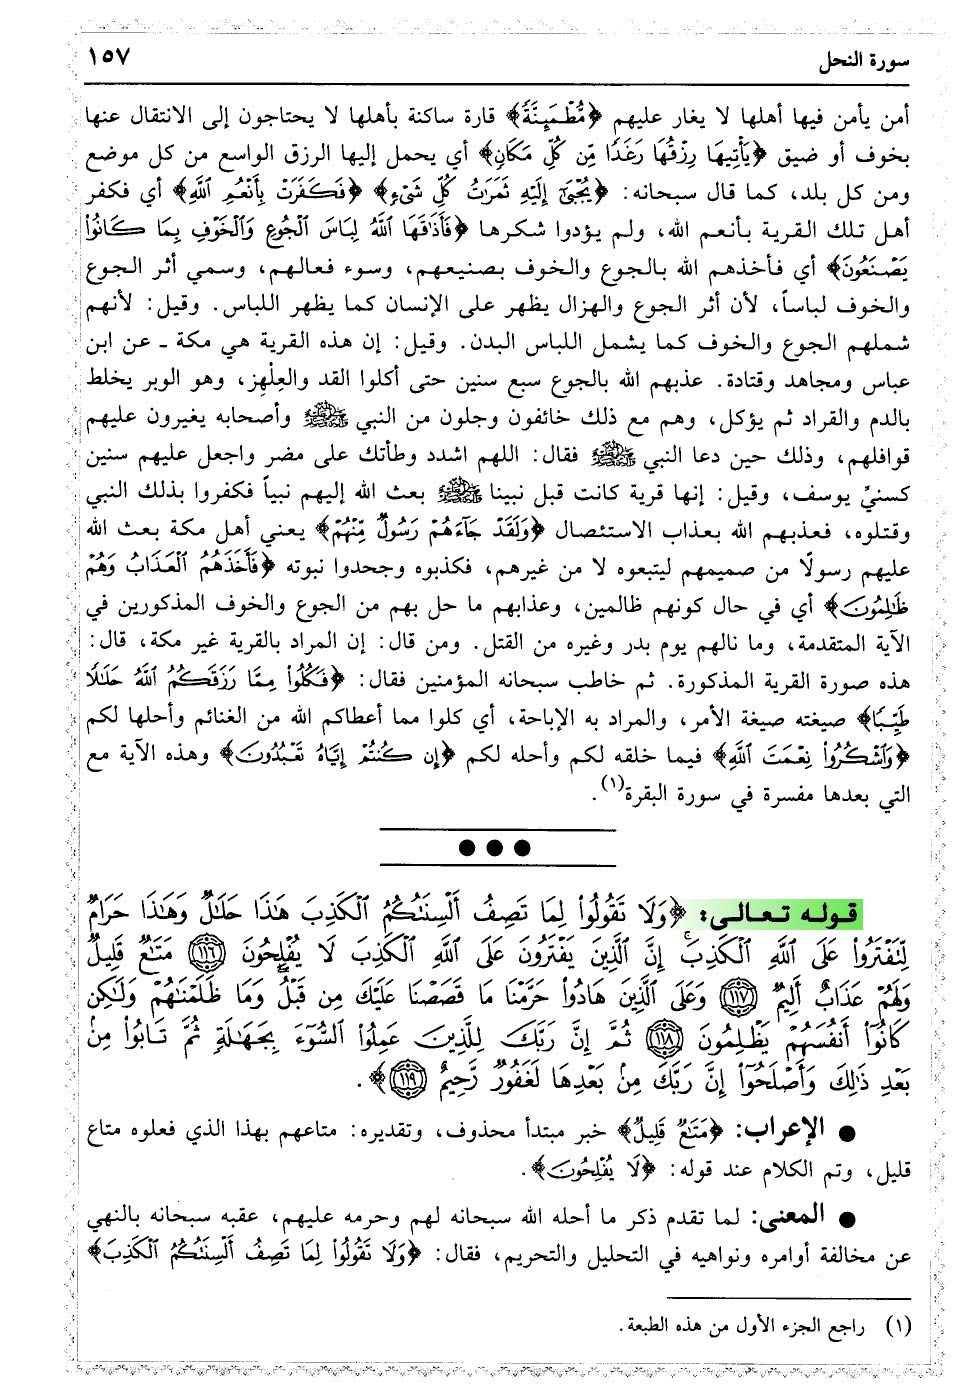 سورة النحل ١٥٧
أمن يأمن فيها أهلها لا يغار عليهم ﴿مُّطْمَئِنَّةً﴾ قارة ساكنة بأهلها لا يحتاجون إلى الانتقال عنها
بخوف أو ضيق ﴿يَأْتِيهَا رِزْقُهَا رَغَدًا مِّن كُلِّ مَكَانٍ﴾ أي يحمل إليها الرزق الواسع من كل موضع
ومن كل بلد، كما قال سبحانه: ﴿يُجْبَىٰ إِلَيْهِ ثَمَرَٰتُ كُلِّ شَىْءٍ﴾ ﴿فَكَفَرَتْ بِأَنْعُمِ ٱللَّهِ﴾ أي فكفر
أهل تلك القرية بأنعم الله، ولم يؤدوا شكرها ﴿فَأَذَٰقَهَا ٱللَّهُ لِبَاسَ ٱلْجُوعِ وَٱلْخَوْفِ بِمَا كَانُوا۟
يَصْنَعُونَ﴾ أي فأخذهم الله بالجوع والخوف بصنيعهم، وسوء فعالهم، وسمي أثر الجوع
والخوف لباساً، لأن أثر الجوع والهزال يظهر على الإنسان كما يظهر اللباس. وقيل: لأنهم
شملهم الجوع والخوف كما يشمل اللباس البدن. وقيل: إن هذه القرية هي مكة ـ عن ابن
عباس ومجاهد وقتادة. عذبهم الله بالجوع سبع سنين حتى أكلوا القد والعِلْهِز، وهو الوبر يخلط
بالدم والقراد ثم يؤكل، وهم مع ذلك خائفون وجلون من النبي ﷺ وأصحابه يغيرون عليهم
قوافلهم، وذلك حين دعا النبي ﷺ فقال: اللهم اشدد وطأتك على مضر واجعل عليهم سنين
كسنيْ يوسف، وقيل: إنها قرية كانت قبل نبينا ﷺ بعث الله إليهم نبياً فكفروا بذلك النبي
وقتلوه، فعذبهم الله بعذاب الاستئصال ﴿وَلَقَدْ جَآءَهُمْ رَسُولٌ مِّنْهُمْ﴾ يعني أهل مكة بعث الله
عليهم رسولًا من صميمهم ليتبعوه لا من غيرهم، فكذبوه وجحدوا نبوته ﴿فَأَخَذَهُمُ ٱلْعَذَابُ وَهُمْ
ظَٰلِمُونَ﴾ أي في حال كونهم ظالمين، وعذابهم ما حل بهم من الجوع والخوف المذكورين في
الآية المتقدمة، وما نالهم يوم بدر وغيره من القتل. ومن قال: إن المراد بالقرية غير مكة، قال:
هذه صورة القرية المذكورة. ثم خاطب سبحانه المؤمنين فقال: ﴿فَكُلُوا۟ مِمَّا رَزَقَكُمُ ٱللَّهُ حَلَٰلًا
طَيِّبًا﴾ صيغته صيغة الأمر، والمراد به الإباحة، أي كلوا مما أعطاكم الله من الغنائم وأحلها لكم
﴿وَٱشْكُرُوا۟ نِعْمَتَ ٱللَّهِ﴾ فيما خلقه لكم وأحله لكم ﴿إِن كُنتُمْ إِيَّاهُ تَعْبُدُونَ﴾ وهذه الآية مع
التي بعدها مفسرة في سورة البقرة(١).
قوله تعالى: ﴿وَلَا تَقُولُوا۟ لِمَا تَصِفُ أَلْسِنَتُكُمُ ٱلْكَذِبَ هَٰذَا حَلَٰلٌ وَهَٰذَا حَرَامٌ
لِّتَفْتَرُوا۟ عَلَى ٱللَّهِ ٱلْكَذِبَ ۚ إِنَّ ٱلَّذِينَ يَفْتَرُونَ عَلَى ٱللَّهِ ٱلْكَذِبَ لَا يُفْلِحُونَ ۝١١٦ مَتَٰعٌ قَلِيلٌ
وَلَهُمْ عَذَابٌ أَلِيمٌ ۝١١٧ وَعَلَى ٱلَّذِينَ هَادُوا۟ حَرَّمْنَا مَا قَصَصْنَا عَلَيْكَ مِن قَبْلُ ۖ وَمَا ظَلَمْنَٰهُمْ وَلَٰكِن
كَانُوٓا۟ أَنفُسَهُمْ يَظْلِمُونَ ۝١١٨ ثُمَّ إِنَّ رَبَّكَ لِلَّذِينَ عَمِلُوا۟ ٱلسُّوٓءَ بِجَهَٰلَةٍ ثُمَّ تَابُوا۟ مِنۢ
بَعْدِ ذَٰلِكَ وَأَصْلَحُوٓا۟ إِنَّ رَبَّكَ مِنۢ بَعْدِهَا لَغَفُورٌ رَّحِيمٌ ۝١١٩﴾.
● الإعراب: ﴿مَتَٰعٌ قَلِيلٌ﴾ خبر مبتدأ محذوف، وتقديره: متاعهم بهذا الذي فعلوه متاع
قليل، وتم الكلام عند قوله: ﴿لَا يُفْلِحُونَ﴾.
● المعنى: لما تقدم ذكر ما أحله الله سبحانه لهم وحرمه عليهم، عقبه سبحانه بالنهي
عن مخالفة أوامره ونواهيه في التحليل والتحريم، فقال: ﴿وَلَا تَقُولُوا۟ لِمَا تَصِفُ أَلْسِنَتُكُمُ ٱلْكَذِبَ﴾
(١) راجع الجزء الأول من هذه الطبعة.